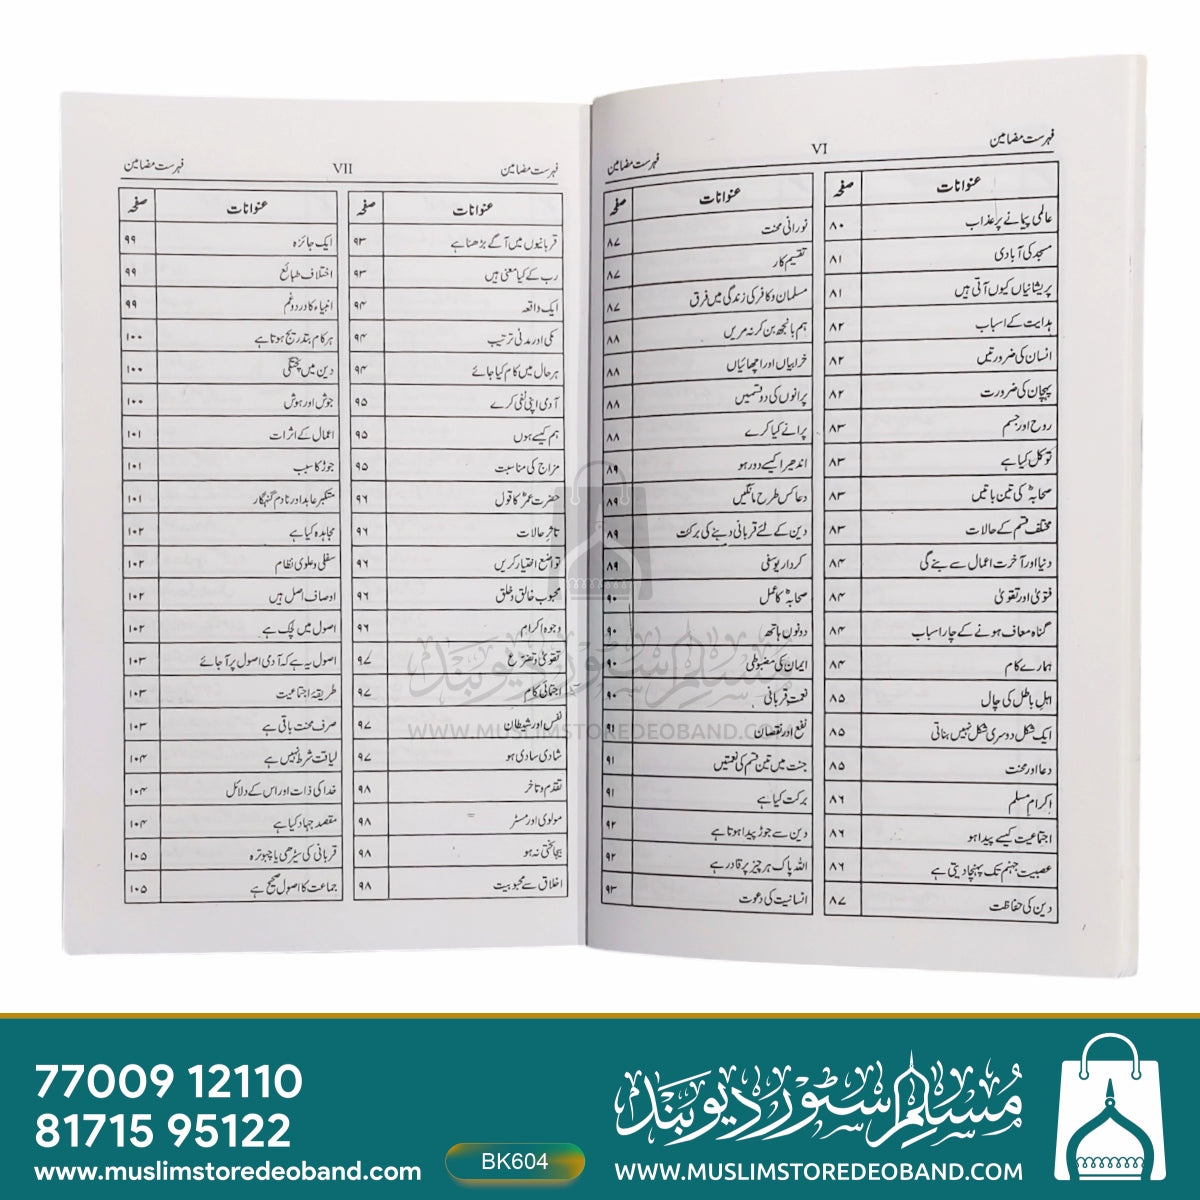 فہرست مضامین VI فہرست مضامین
عنوانات صفحہ
عالمی پیمانے پر عذاب ۸۰
مسجد کی آبادی ۸۱
پریشانیاں کیوں آتی ہیں ۸۱
ہدایت کے اسباب ۸۲
انسان کی ضرورتیں ۸۲
پہچان کی ضرورت ۸۲
روح اور جسم ۸۳
توکل کیا ہے ۸۳
صحابہؓ کی تین باتیں ۸۳
مختلف قسم کے حالات ۸۳
دنیا اور آخرت اعمال سے بنے گی ۸۴
فتویٰ اور تقویٰ ۸۴
گناہ معاف ہونے کے چار اسباب ۸۴
ہمارے کام ۸۴
اہل باطل کی چال ۸۵
ایک شکل دوسری شکل نہیں بناتی ۸۵
دعا اور محنت ۸۵
اکرام مسلم ۸۶
اجتماعیت کیسے پیدا ہو ۸۶
عصبیت جہنم تک پہنچا دیتی ہے ۸۶
دین کی حفاظت ۸۷
عنوانات صفحہ
نورانی محنت ۸۷
تقسیم کار ۸۷
مسلمان و کافر کی زندگی میں فرق ۸۷
ہم بانجھ بن کر نہ مریں ۸۸
خرابیاں اور اچھائیاں ۸۸
پرانوں کی دو قسمیں ۸۸
پرانے کیا کرے ۸۸
اندھیرا کیسے دور ہو ۸۹
دعا کس طرح مانگیں ۸۹
دین کے لئے قربانی دینے کی برکت ۸۹
کردار یوسفی ۸۹
صحابہؓ کا عمل ۹۰
دونوں ہاتھ ۹۰
ایمان کی مضبوطی ۹۰
نعمت قربانی ۹۰
نفع اور نقصان ۹۱
جنت میں تین قسم کی نعمتیں ۹۱
برکت کیا ہے ۹۱
دین سے جوڑ پیدا ہوتا ہے ۹۲
اللہ پاک ہر چیز پر قادر ہے ۹۲
انسانیت کی دعوت ۹۳
فہرست مضامین VII فہرست مضامین
عنوانات صفحہ
قربانیوں میں آگے بڑھنا ہے ۹۳
رب کے کیا معنی ہیں ۹۳
ایک واقعہ ۹۴
مکی اور مدنی ترتیب ۹۴
ہر حال میں کام کیا جائے ۹۴
آدمی اپنی نفی کرے ۹۵
ہم کیسے ہوں ۹۵
مزاج کی مناسبت ۹۵
حضرت عمرؓ کا قول ۹۶
تاثر حالات ۹۶
تواضع اختیار کریں ۹۶
محبوب خالق و خلق ۹۶
وجوہ اکرام ۹۶
تقویٰ و تضرع ۹۷
اجتماعی کام ۹۷
نفس اور شیطان ۹۷
شادی سادی ہو ۹۷
تقدم و تاخر ۹۸
مولوی اور مسٹر ۹۸
بیجا سختی نہ ہو ۹۸
اخلاق سے محبوبیت ۹۸
عنوانات صفحہ
ایک جائزہ ۹۹
اختلاف طبائع ۹۹
انبیاء کا درد و غم ۹۹
ہر کام بتدریج ہوتا ہے ۱۰۰
دین میں پختگی ۱۰۰
جوش اور ہوش ۱۰۰
اعمال کے اثرات ۱۰۱
جوڑ کا سبب ۱۰۱
متکبر عابد اور نادم گنہگار ۱۰۱
مجاہدہ کیا ہے ۱۰۲
سفلی و علوی نظام ۱۰۲
اوصاف اصل ہیں ۱۰۲
اصول میں لچک ہے ۱۰۲
اصول یہ ہے کہ آدمی اصول پر آجائے ۱۰۳
طریقۂ اجتماعیت ۱۰۳
صرف محنت باقی ہے ۱۰۳
لیاقت شرط نہیں ہے ۱۰۴
خدا کی ذات اور اس کے دلائل ۱۰۴
مقصد جہاد کیا ہے ۱۰۴
قربانی کی سیڑھی یا چبوترہ ۱۰۵
جماعت کا اصول صحیح ہے ۱۰۵
مسلم سٹور دیوبند
WWW.MUSLIMSTOREDEOBAND.COM
77009 12110
81715 95122
www.muslimstoredeoband.com
BK604
مسلم سٹور دیوبند
WWW.MUSLIMSTOREDEOBAND.COM